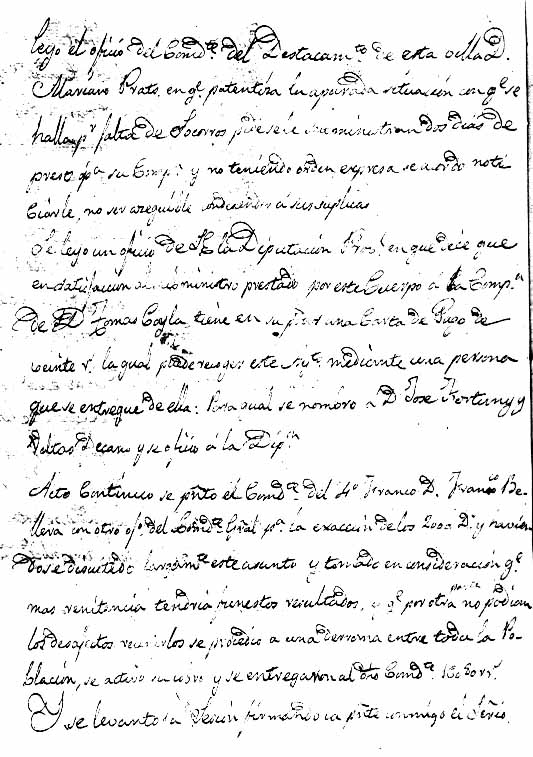 leyo el oficio del Comd.te del Destacam.to de esta villa D.
Mariano Prats, en q.e patentiza la apurada situacion con q.e se
halla p.r falta de Socorros pues se le suministran dos dias de
prest p.a su Comp.a y no teniendo orden expresa se acordo noti
ciarle, no ser asequible condescender á sus suplicas.
Se leyo un oficio de S.E. la Diputacion Prov.l en que dice que
en satisfaccion del suministro prestado por este Cuerpo á la Comp.a
de D. Tomas Coylla tiene en su poder una Carta de Pago de
veinte r.s la qual puede recoger este Ay.to mediante una persona
que se entregue de ella: Para qual se nombro a D. Jose Fortuny y
Decano y se oficio á la Dip.n
Acto Continuo se pnto el Comd.te del 4º Franco D. Fran.co Be-
llera con otro of.o del Comd.te Gral p.a la exaccion de los 2000 D.s y havien
dose discutido largam.te este asunto y tomado en consideracion q.e
mas renitencia tendria funestos resultados, y q.e por otra parte no podian
los desafectos se procedio a una derrama entre toda la Po-
blacion, se activo su cobro y se entregaron al dho Comd.te
Y se levanto la Sesion firmando la pnte conmigo el Srio.